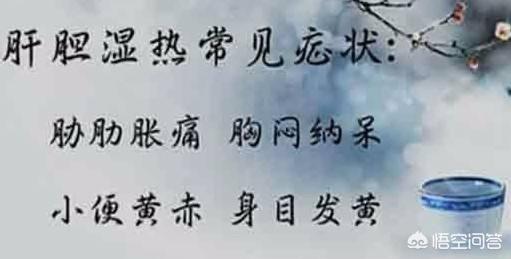 肝胆湿热常见症状:
胁肋胀痛 胸闷纳呆
小便黄赤 身目发黄
悟空问答